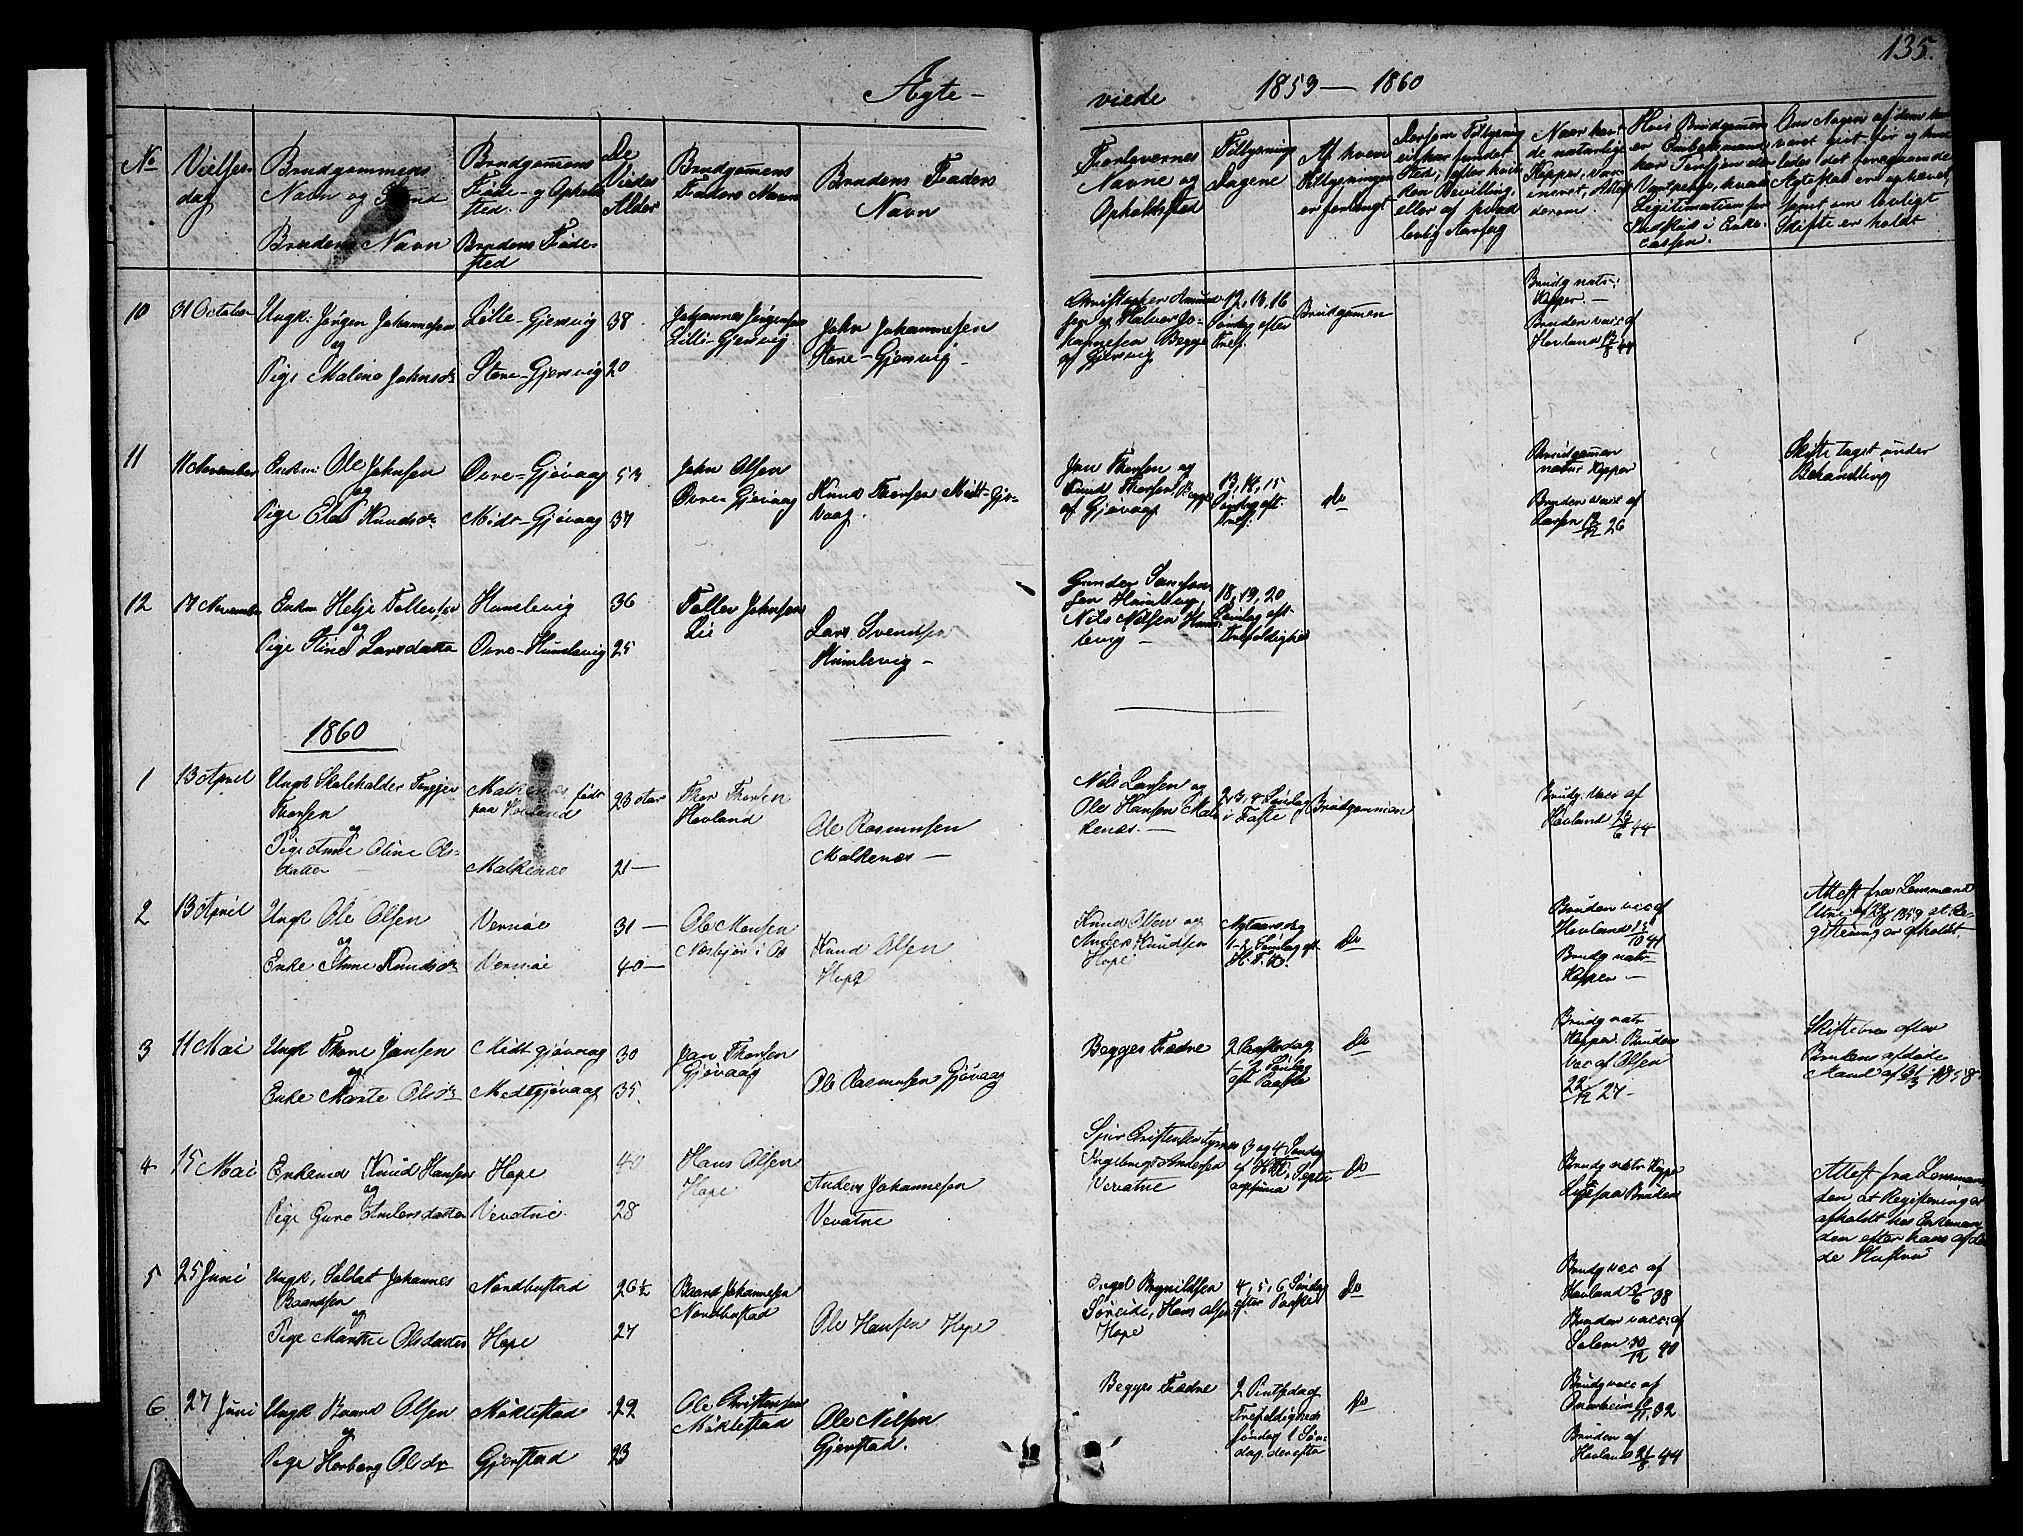 135.
Ægte-
viede 1859 — 1860
No
Vielses-
dag
Brudgommens
Navn og Stand
Brudens Navn
Brudgomens
Føde- og Opholds
sted.
Brudens Føde-
sted
De
Viedes
Alder
Brudgomens
Faders Navn
Brudens Faders
Navn
Forlovernes
Navne og
Opholdssted
Tillysnings
Dagene
Af hvem
Tillysningen
er forlangt
Dersom Tillysning
ei har fundet
Sted, efter hvil
ken Bevilling,
eller af
lovlig Aarsag
Naar hav-
de naturlige
Kopper, vac-
cineret, Attest
derom.
Hvis Brudgomen
er Enkemand,
har
Legitimation for
Indskud i Enke-
cassen.
Om Nogen af dem har
været gift før og hvor-
ledes det foregaaende
Ægteskab er ophævet,
samt om lovligt
Skifte er holdt
10
31 October
Ungk: Jørgen Johannesen
og
Pige Malene Johnsdr
Lille-Gjersvig
Store-Gjersvig
38
20
Johannes Jørgensen
Lille-Gjersvig
John Johannesen
Store-Gjersvig
Christopher
sen og Halvor Jo-
hannesen Begge
af Gjersvig
12, 13, 16
Søndag efter
Tref.
Brudgomen
Brudg nat:
Kopper. —
Bruden vac: af
Hovland 12/8 44
11
11 November
Enkm: Ole Johnsen
og
Pige Knudsdr
Øvre-Gjøvaag
Midt-Gjøvaag
53
37
John Olsen
Øvre-Gjøvaag
Knud Thorsen Midt-Gjø-
vaag.
Jan Thorsen og
Knud Thorsen, Begge
af Gjøvaag
13, 14, 15
Søndag eft.
Tref.
do
Brudgomen
natur Kopper
Bruden vac af
Larsen 12/12 26
Skifte taget under
Behandling
12
17 November
Enkm Helje Tollevsen
og
Pige Stine Larsdatter
Humlevig
Øvre-Humlevig
36
25
Tollev Johnsen
Lie
Lars Svendsen
Humlevig —
Gunder
sen Humlevig
Nils Nilsen Hum-
levig —
18, 19, 20
Søndag eft.
Trefoldighed
1860
1
13 April
Ungk Skoleholder Torgjer
Thorsen
og
Pige Anne Oline Ols-
datter
Malkenæs født
paa Hovland
Malkenæs
23 Aar
21 —
Thor Thorsen
Hovland
Ole Rasmusen
Malkenæs —
Nils Larsen og
Ole Hansen Mal-
kenæs. —
2, 3, 4 Søndag
i Faste
Brudgomman
Brudg Vacc af
Hovland 29/6 44
2
13 April
Ungk Ole Olsen
og
Enke Anne Knudsdr
Vernøe
Vernøe
31 —
40 —
Ole Monsen
i Os
Knud Olsen
Hope
Knud Olsen og
Anders Knudsen
Hope
Nytaarsdag
1-2 Søndag eft
H. 3 K.
Do
Bruden vac af
Hovland 15/10 41
Brudg natr
Kopper —
Attest fra Lensmand
af 1859 at Re-
gistrering er afholdt.
3
11 Mai
Ungk Thore Jansen
og
Enke Marte Olsdr
Midtgjøvaag
Midtgjøvaag
30
35.
Jan Thorsen
Gjøvaag
Ole Rasmusen Gjøvaag
Begges Fædre
2 Paaskedag
1-2 Søndag
eft Paaske
Do
Brudg natr
Kopper. Bruden
Vac af Olsen
22/12 27 —
Skiftebrev efter
Brudens afdøde
Mand af 31/3 1858.
4
15 Mai
Enkemd Knud Hansen
og
Pige Guro Andersdatter
Hope
Vevatne
40
28
Hans Olsen
Hope
Anders Johannesen
Vevatne
Sjur Christensen
Ingebrigt Andersen
Vevatne
3 og 4 Søndag
Do
Brudg natr Kopper
Ligesaa Bruden
Attest fra Lensman-
den at Registrering er
afholdt hos Enkeman-
den efter hans afdø-
de Hustru
5
25 Juni
Ungk, Soldat Johannes
Baardsen
og
Pige Marthe Olsdatter
Nordhustad
Hope
26½
27
Baard Johannesen
Nordhustad
Ole Hansen Hope
Ingel Brynildsen
Søreide, Hans Olsen
Hope
4, 5, 6 Søndag
efter Paaske
Do
Brudg vac af
Hovland 2/6 38
Bruden vacc: af
Salem 30/12 40
6
27 Juni
Ungk Baard Olsen
og
Pige Herborg Olsdr
Møklestad
Gjerstad
29
23
Ole Christensen
Møklestad
Ole Nilsen
Gjerstad.
Begges Fædre
2 Pintsedag
Trefoldigheds
søndag 1 Søn-
dag derefter
Do
Brudg vac af
32
Bruden af
Hovland 21/8 44